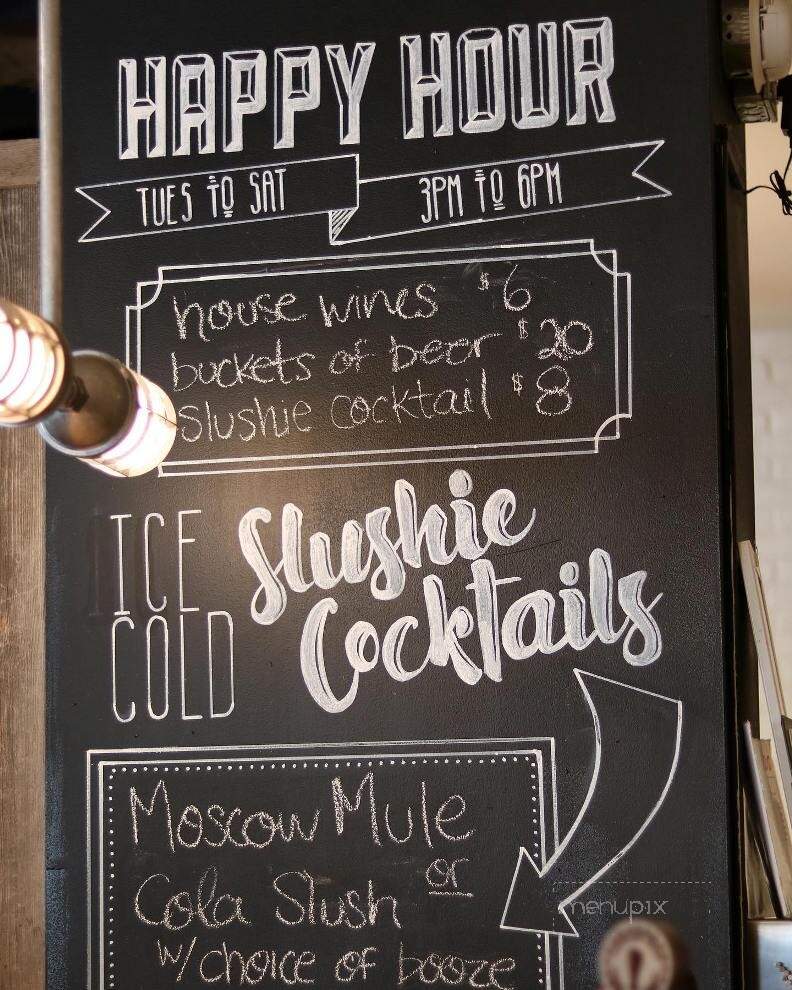 HAPPY HOUR
TUES TO SAT 3PM TO 6PM
house wines $6
buckets of beer $20
slushie cocktail $8
ICE COLD
Slushie
Cocktails
Moscow Mule
or
Cola Slush
w/ choice of booze
menupix